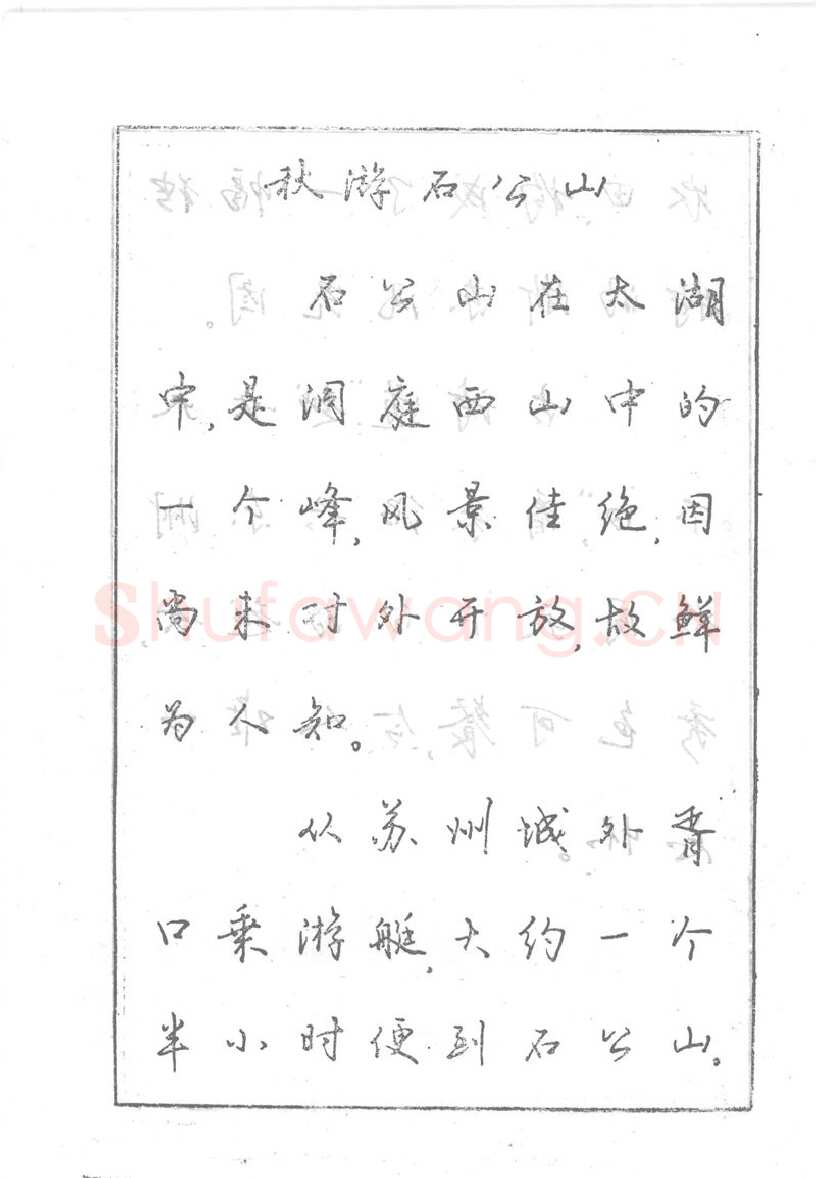 秋游石公山
石公山在太湖
中,是洞庭西山中的
一个峰,风景佳绝,因
尚未对外开放,故鲜
Shufawang.CN
为人知。
从苏州城外胥
口乘游艇,大约一个
半小时便到石公山。